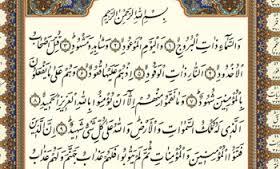 بِسْمِ اللَّهِ الرَّحْمَنِ الرَّحِيمِ
وَالسَّمَاءِ ذَاتِ الْبُرُوجِ ﴿١﴾ وَالْيَوْمِ الْمَوْعُودِ ﴿٢﴾ وَشَاهِدٍ وَمَشْهُودٍ ﴿٣﴾ قُتِلَ أَصْحَابُ
الْأُخْدُودِ ﴿٤﴾ النَّارِ ذَاتِ الْوَقُودِ ﴿٥﴾ إِذْ هُمْ عَلَيْهَا قُعُودٌ ﴿٦﴾ وَهُمْ عَلَى مَا يَفْعَلُونَ
بِالْمُؤْمِنِينَ شُهُودٌ ﴿٧﴾ وَمَا نَقَمُوا مِنْهُمْ إِلَّا أَنْ يُؤْمِنُوا بِاللَّهِ الْعَزِيزِ الْحَمِيدِ ﴿٨﴾
الَّذِي لَهُ مُلْكُ السَّمَوَاتِ وَالْأَرْضِ وَاللَّهُ عَلَى كُلِّ شَيْءٍ شَهِيدٌ ﴿٩﴾ إِنَّ الَّذِينَ
فَتَنُوا الْمُؤْمِنِينَ وَالْمُؤْمِنَاتِ ثُمَّ لَمْ يَتُوبُوا فَلَهُمْ عَذَابُ جَهَنَّمَ وَلَهُمْ عَذَابُ